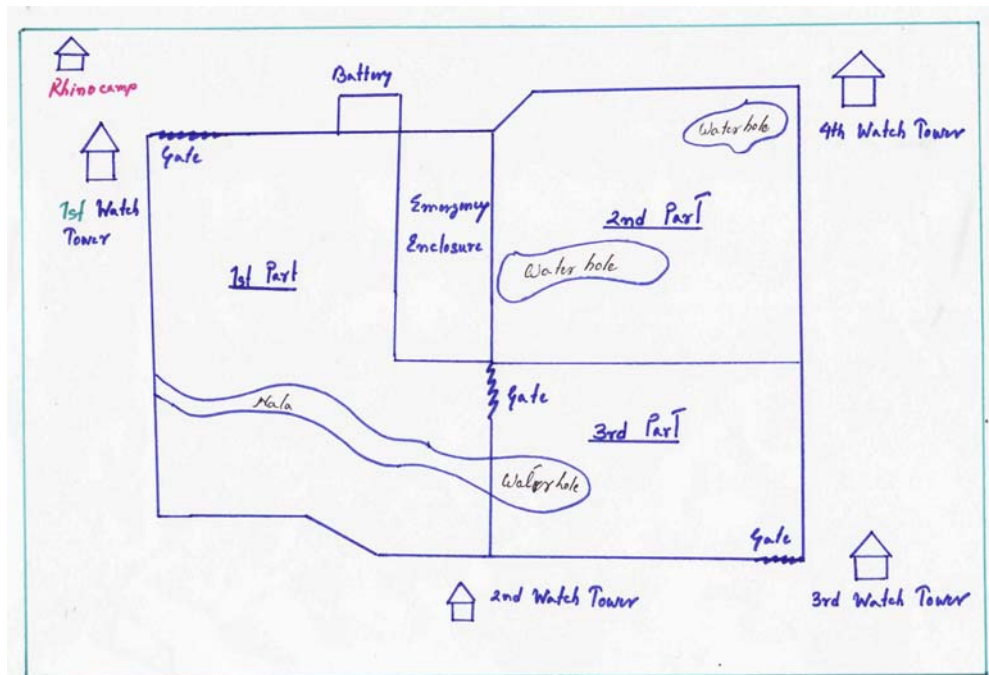 Rhino camp
Battery
Gate
1st Watch
Tower
Water hole
4th Watch Tower
Emergency
Enclosure
2nd Part
Water hole
1st Part
Nala
Gate
3rd Part
Water hole
Gate
2nd Watch Tower
3rd Watch Tower